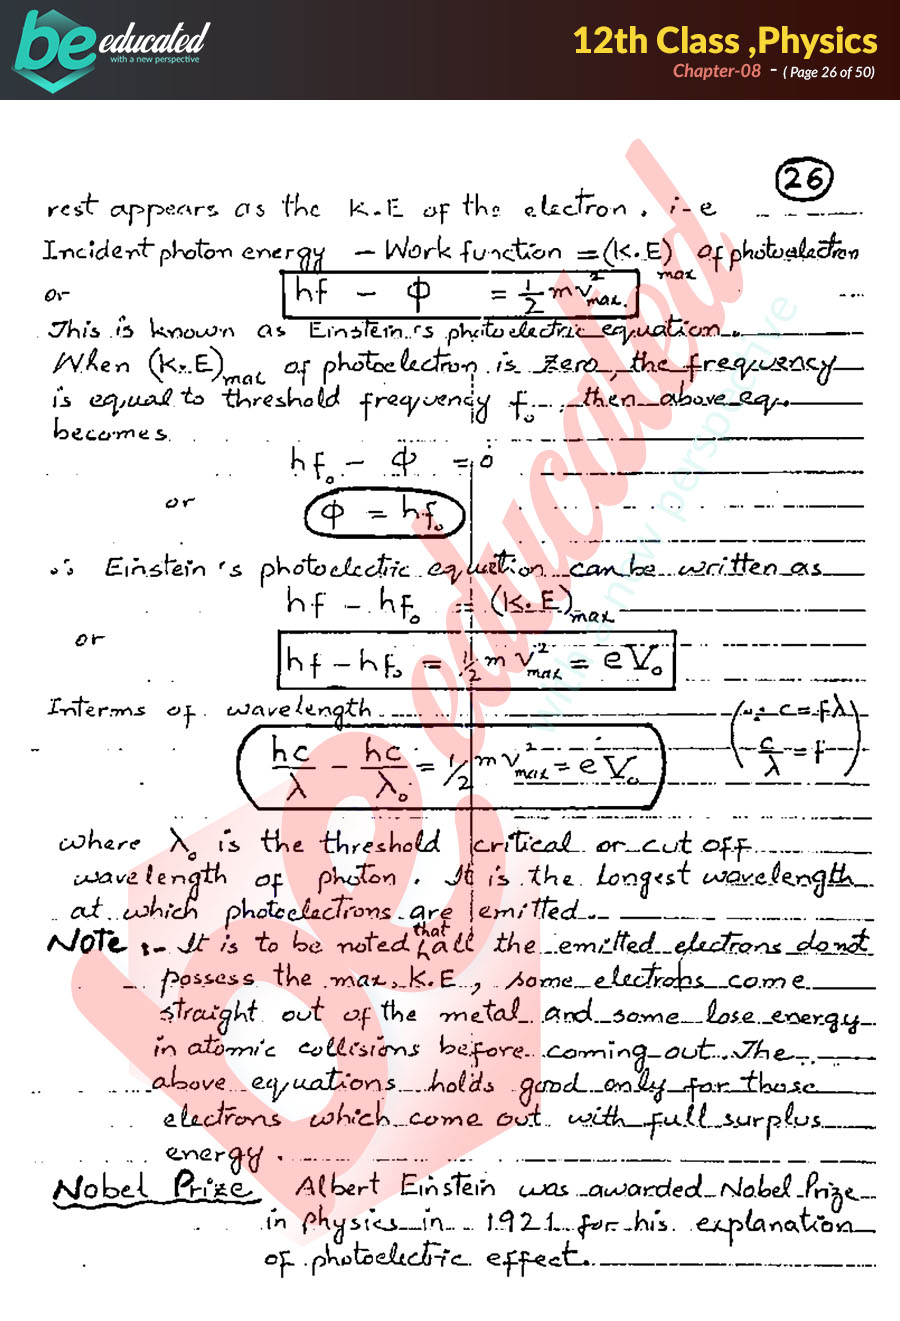 be educated
with a new perspective
12th Class ,Physics
Chapter-08 - ( Page 26 of 50)
26
rest appears as the K.E of the electron. i-e
Incident photon energy – Work function = (K.E)max of photoelectron
or hf – Φ = 1/2 m v²max.
This is known as Einstein's photoelectric equation.
When (K.E)max of photoelectron is zero, the frequency
is equal to threshold frequency f₀ . then above eq.
becomes
hf₀ – Φ = 0
or Φ = hf₀
∴ Einstein's photoelectric equation can be written as
hf – hf₀ = (K.E)max
or
hf – hf₀ = 1/2 m v²max = eV₀
Interms of wavelength
(∵ c = fλ
c/λ = f)
hc/λ – hc/λ₀ = 1/2 m v²max = eV₀
where λ₀ is the threshold critical or cut off
wavelength of photon. It is the longest wavelength
at which photoelectrons are emitted.
Note :- It is to be noted that all the emitted electrons do not
possess the max. K.E, some electrons come
straight out of the metal and some lose energy
in atomic collisions before coming out. The
above equations holds good only for those
electrons which come out with full surplus
energy.
Nobel Prize Albert Einstein was awarded Nobel Prize
in physics in 1921 for his explanation
of photoelectric effect.
be educated
with a new perspective